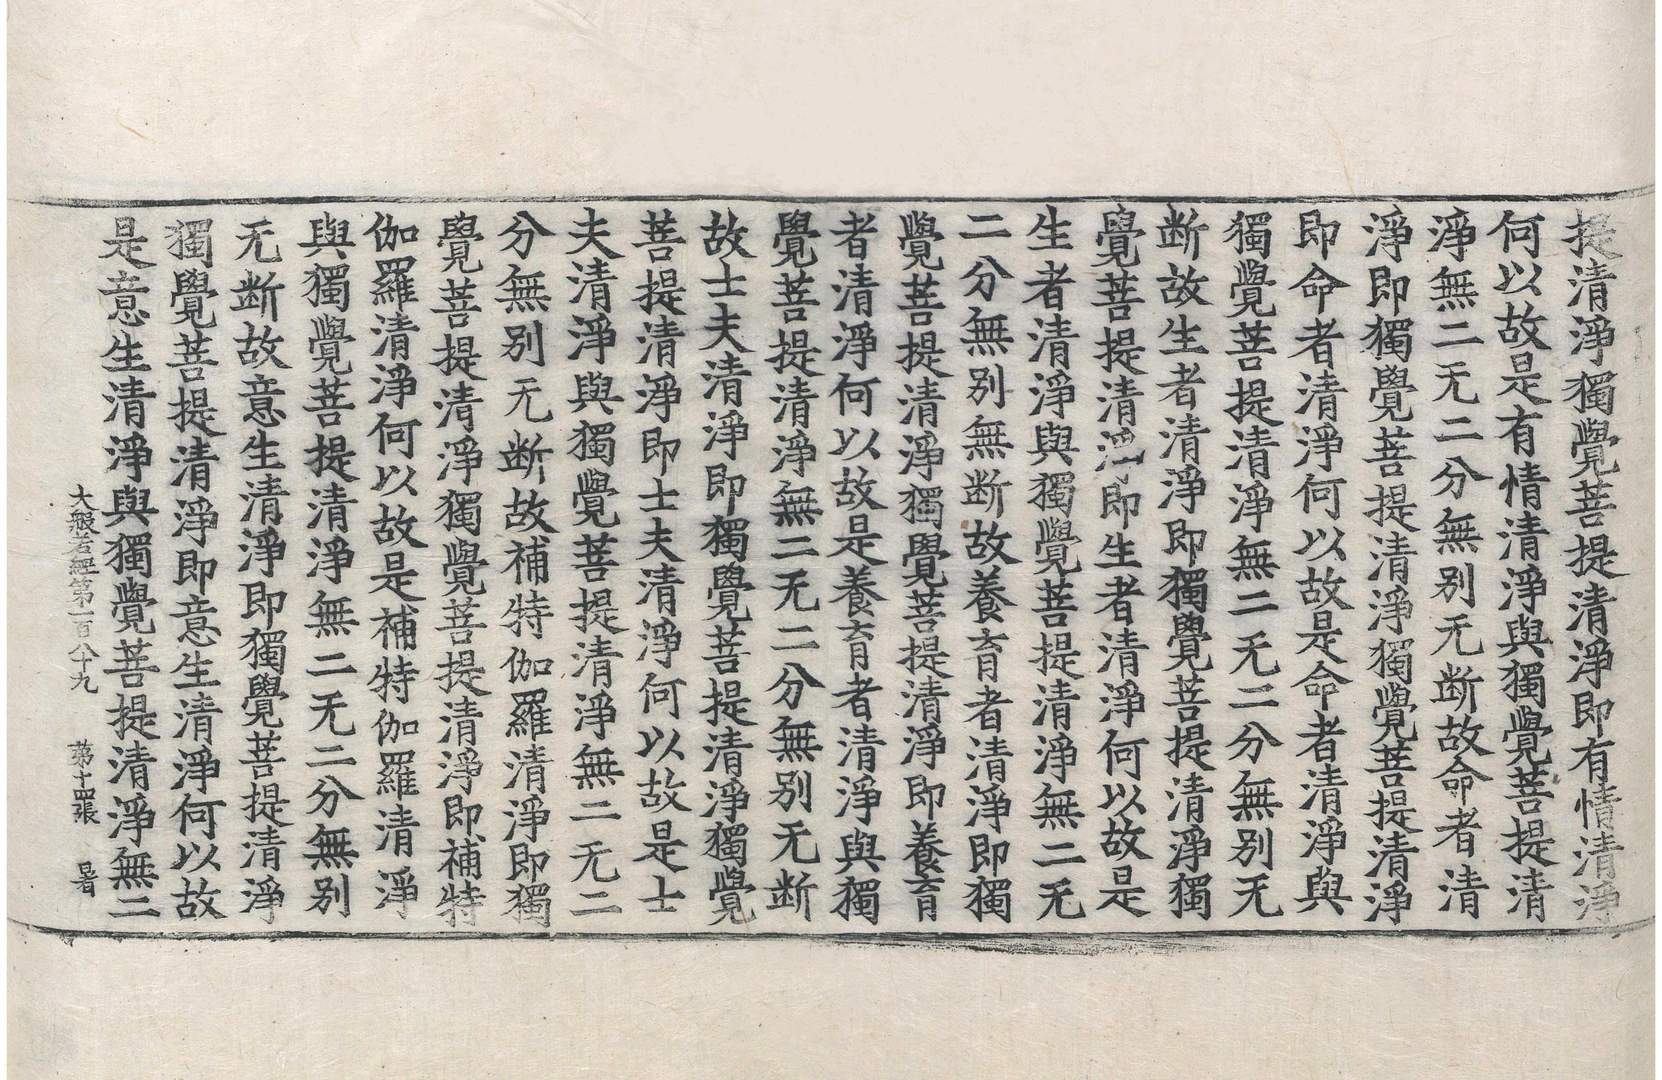 提清淨獨覺菩提清淨即有情清淨
何以故是有情清淨與獨覺菩提清
淨無二无二分無别无断故命者清
淨即獨覺菩提清淨獨覺菩提清淨
即命者清淨何以故是命者清淨與
獨覺菩提清淨無二无二分無别无
断故生者清淨即獨覺菩提清淨獨
覺菩提清淨即生者清淨何以故是
生者清淨與獨覺菩提清淨無二无
二分無别無断故養育者清淨即獨
覺菩提清淨獨覺菩提清淨即養育
者清淨何以故是養育者清淨與獨
覺菩提清淨無二无二分無别无断
故士夫清淨即獨覺菩提清淨獨覺
菩提清淨即士夫清淨何以故是士
夫清淨與獨覺菩提清淨無二无二
分無别无断故補特伽羅清淨即獨
覺菩提清淨獨覺菩提清淨即補特
伽羅清淨何以故是補特伽羅清淨
與獨覺菩提清淨無二无二分無别
无断故意生清淨即獨覺菩提清淨
獨覺菩提清淨即意生清淨何以故
是意生清淨與獨覺菩提清淨無二
大般若經第一百八十九 第十四張 暑